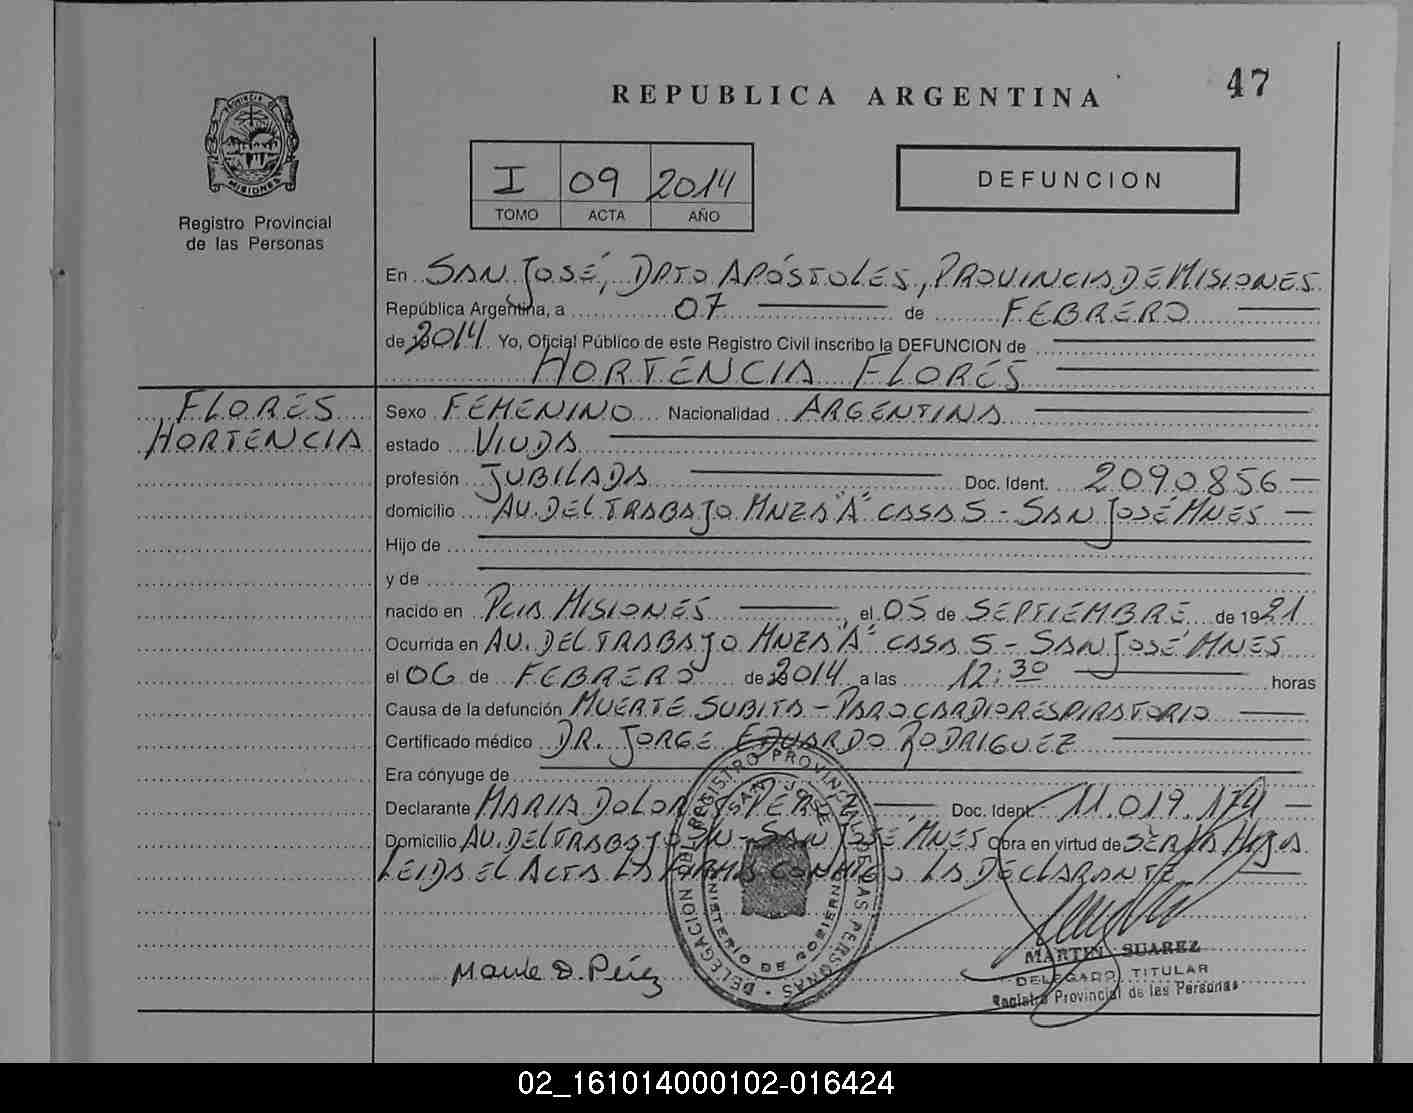 47
REPUBLICA ARGENTINA
PROVINCIA DE MISIONES
Registro Provincial
de las Personas
I 09 2014
TOMO ACTA AÑO
DEFUNCION
En SAN JOSÉ, DPTO APÓSTOLES, PROVINCIA DE MISIONES
República Argentina, a 07 de FEBRERO
de 2014. Yo, Oficial Público de este Registro Civil inscribo la DEFUNCION de
HORTENCIA FLORES
FLORES
HORTENCIA
Sexo FEMENINO Nacionalidad ARGENTINA
estado VIUDA
profesión JUBILADA Doc. Ident. 2090856
domicilio AV. DEL TRABAJO MNZA "A" CASA 5 - SAN JOSÉ MNES
Hijo de
y de
nacido en PCIA MISIONES, el 05 de SEPTIEMBRE de 1921
Ocurrida en AV. DEL TRABAJO MNZA "A" CASA 5 - SAN JOSÉ MNES
el 06 de FEBRERO de 2014 a las 12:30 horas
Causa de la defunción MUERTE SUBITA - PARO CARDIORESPIRATORIO
Certificado médico DR. JORGE EDUARDO RODRIGUEZ
Era cónyuge de
Declarante MARIA DOLORES PEREZ Doc. Ident. 11.019.174
Domicilio AV. DEL TRABAJO S/N - SAN JOSÉ MNES Obra en virtud de SER LA HIJA
LEIDA EL ACTA LA FIRMA CONMIGO LA DECLARANTE
DELEGACION DEL REGISTRO PROVINCIAL DE LAS PERSONAS
SAN JOSE
MINISTERIO DE GOBIERNO
D. Pérez
MARTIN SUAREZ
DELEGADO TITULAR
Registro Provincial de las Personas
02_161014000102-016424